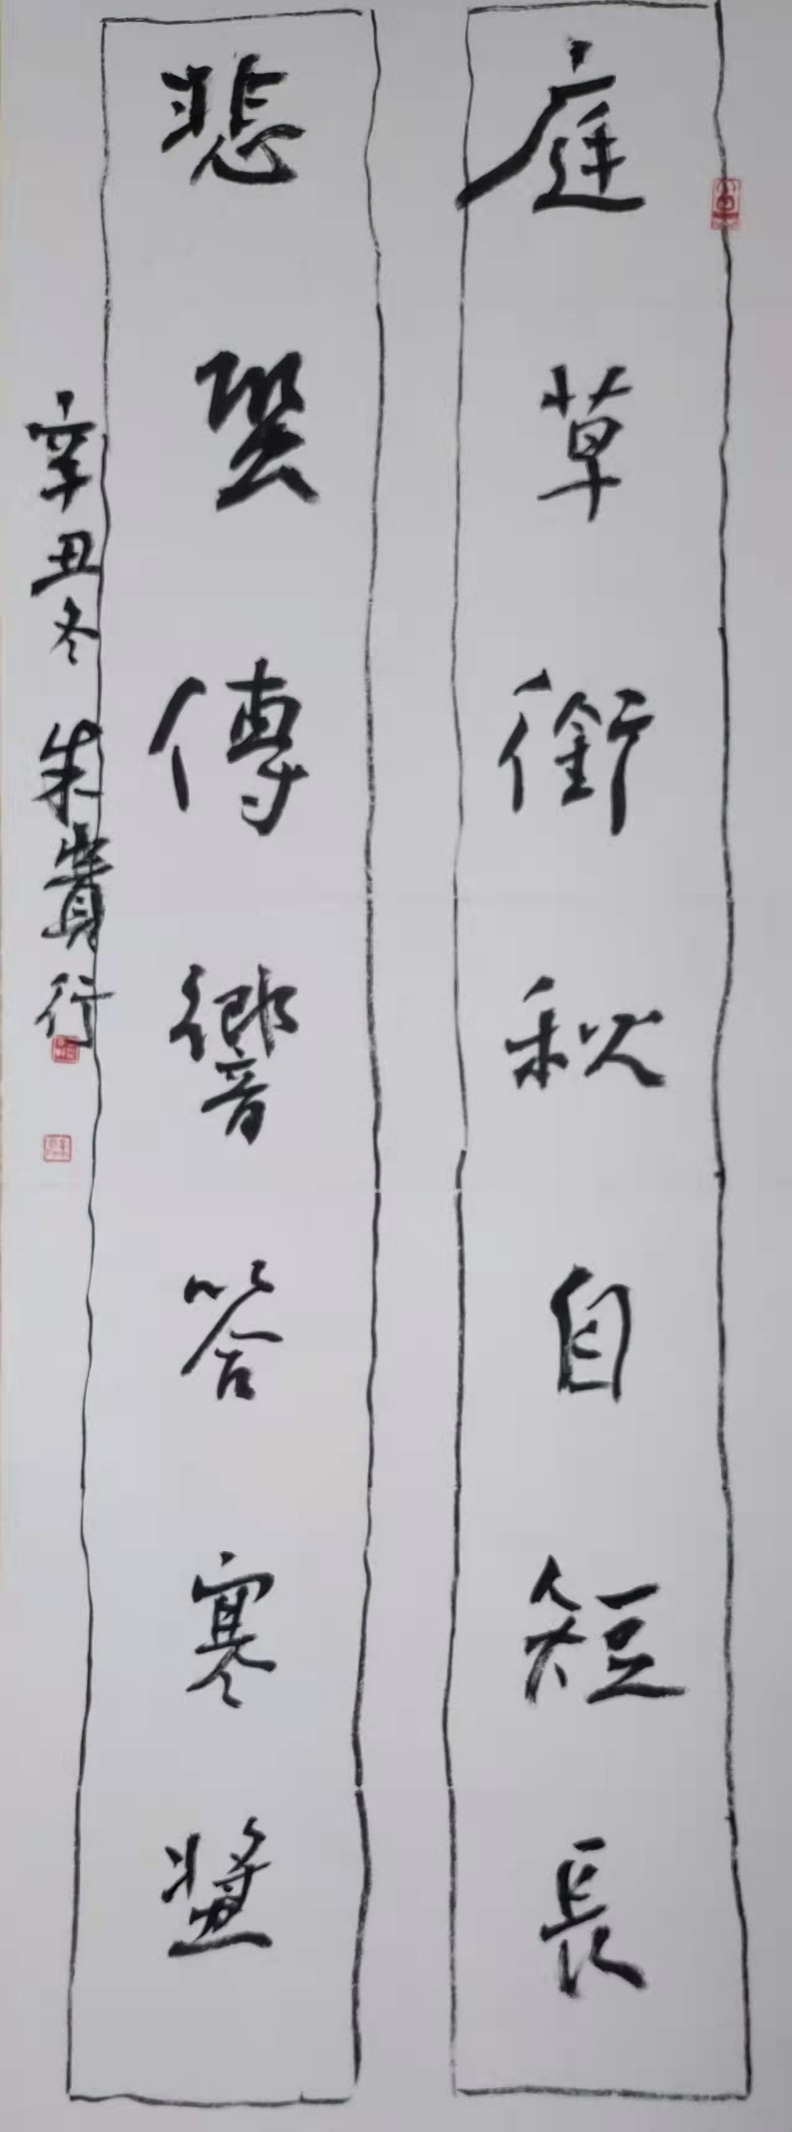 庭草銜秋自短長
悲蛩傳響答寒螿
辛丑冬 朱 行